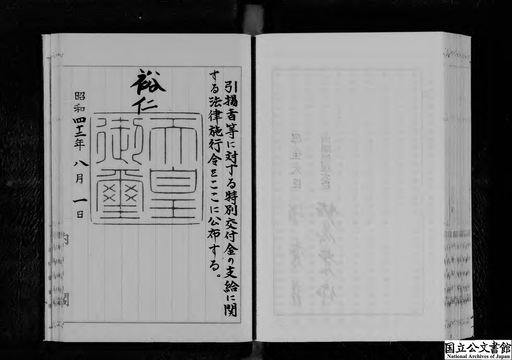 引揚者等に対する特別交付金の支給に関
する法律施行令をここに公布する。
裕仁
天皇
御璽
昭和四十二年八月一日
内閣
国立公文書館
National Archives of Japan